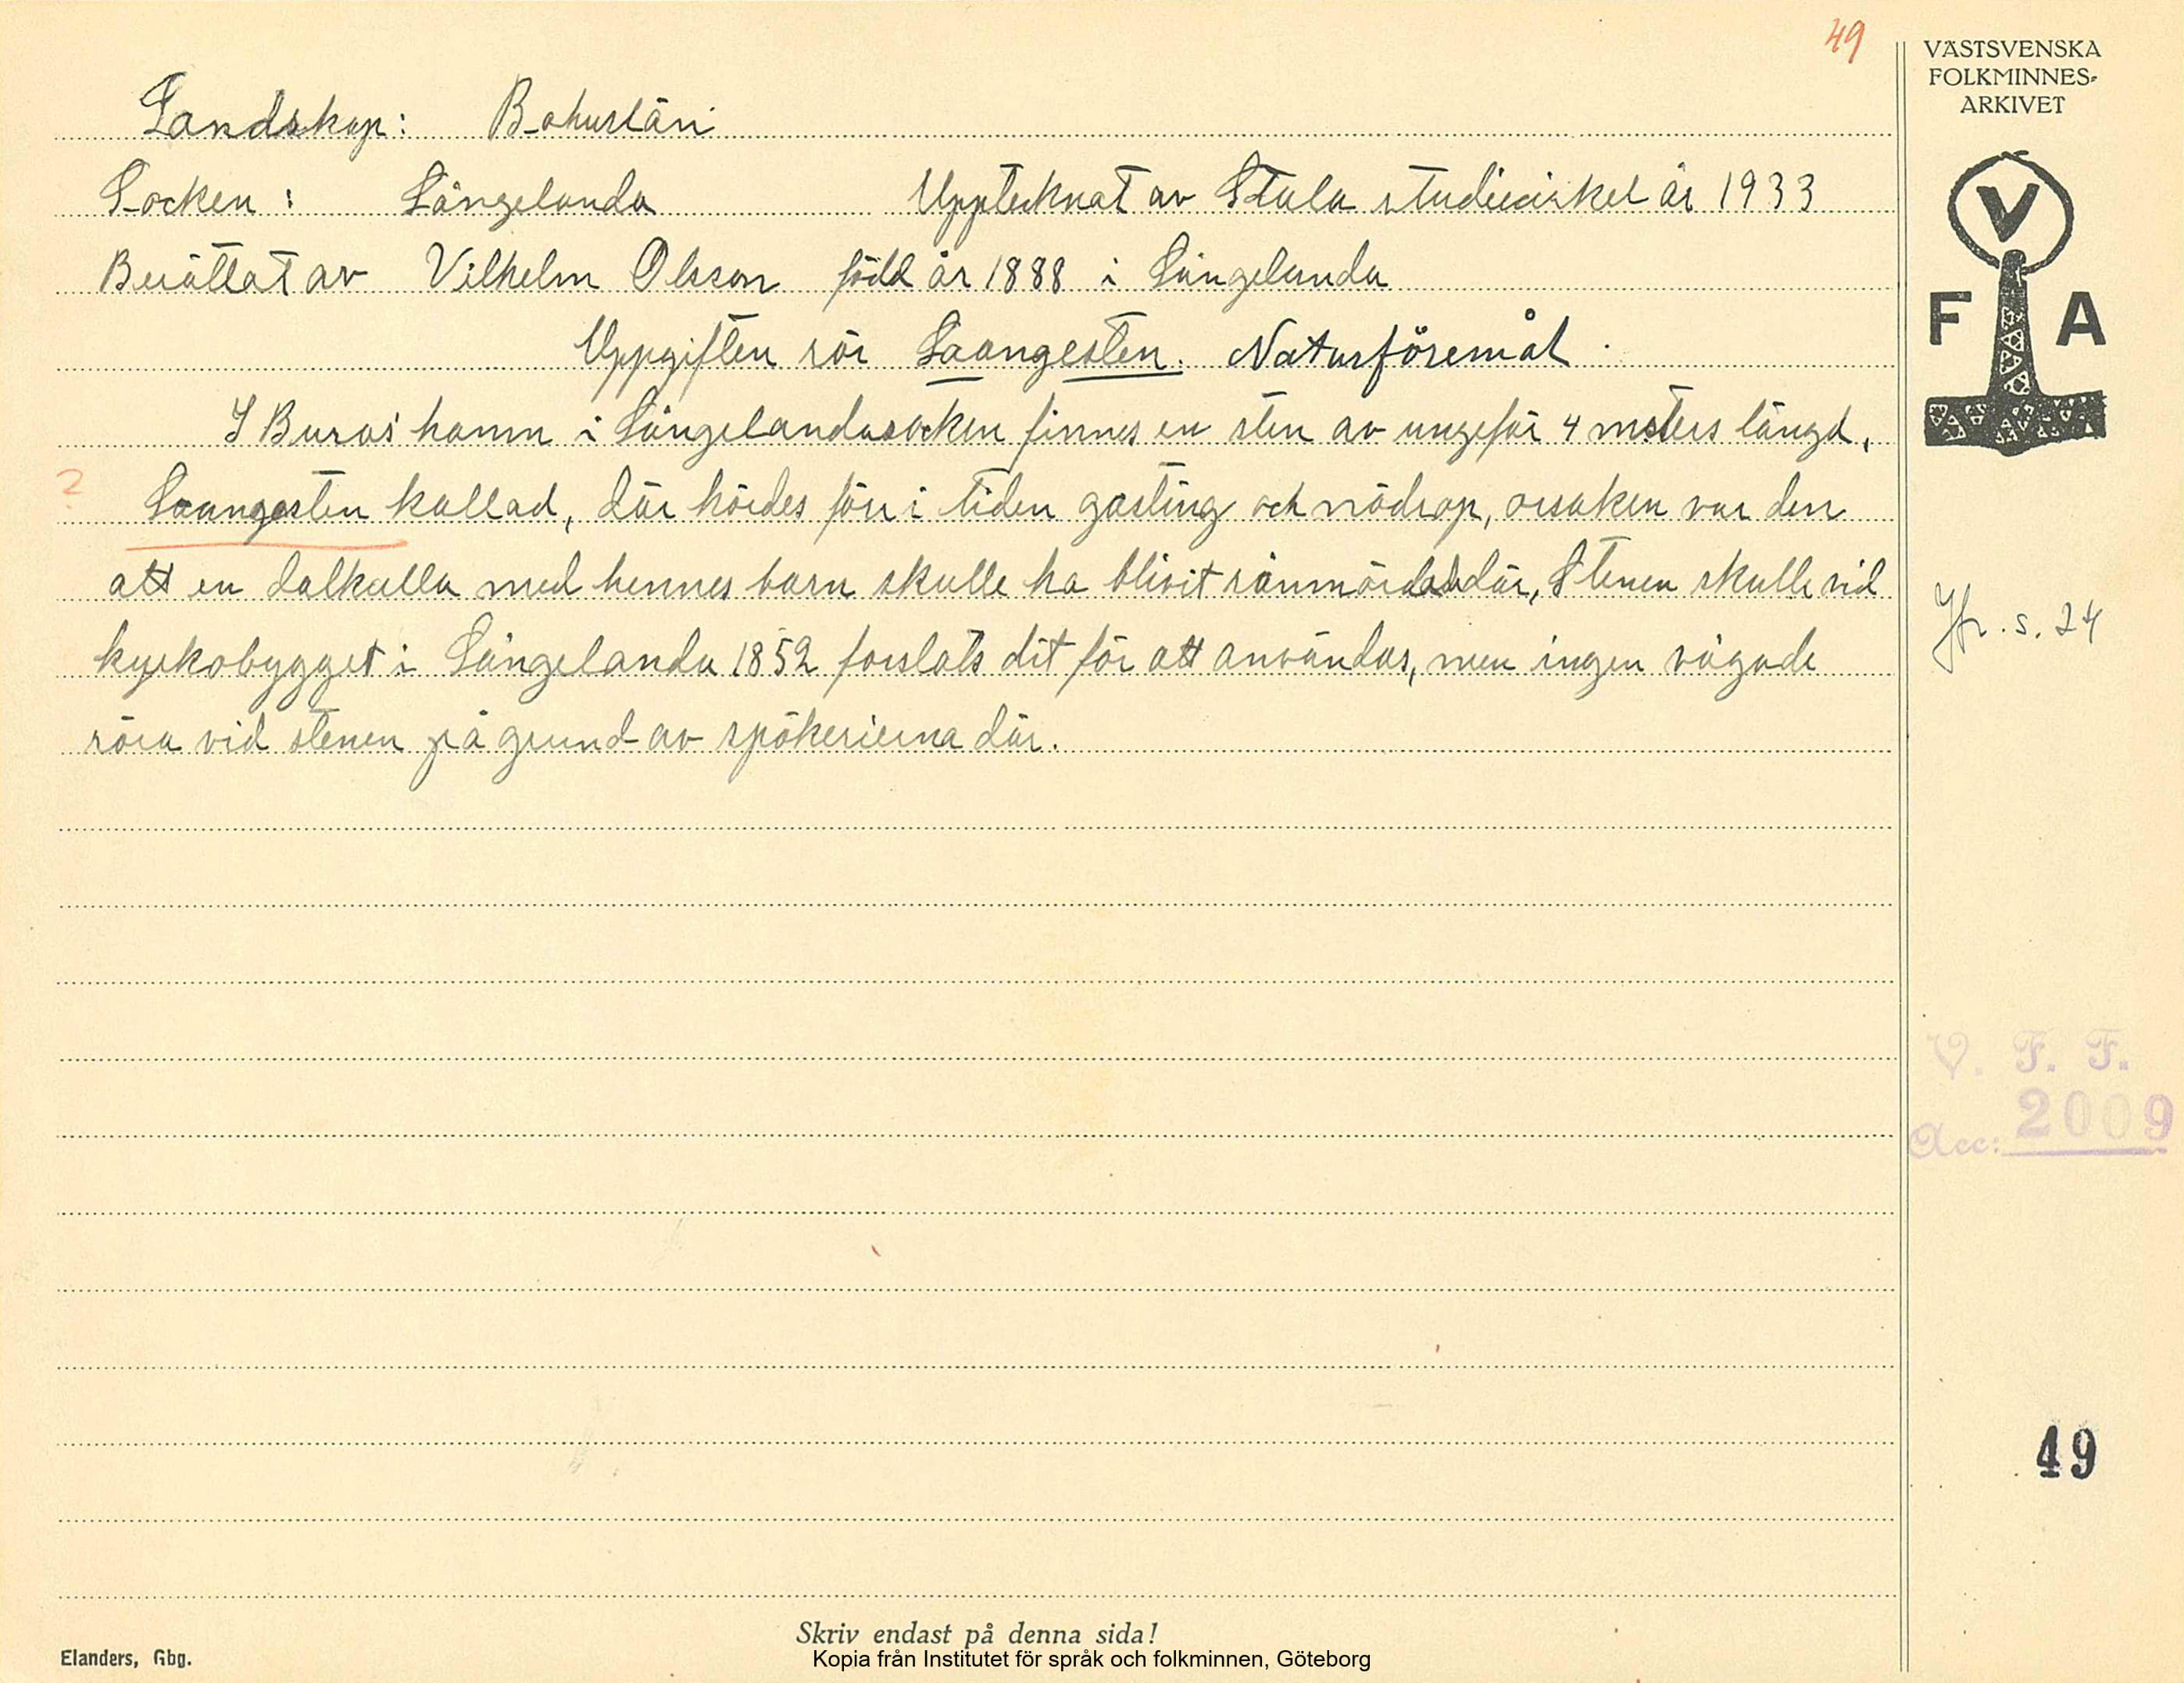 49
VÄSTSVENSKA
FOLKMINNES-
ARKIVET
V
F A
Landskap: Bohuslän
Socken: Långelanda Upptecknat av Stala studiecirkel år 1933
Berättat av Vilhelm Olsson född år 1888 i Långelanda
Uppgiften rör Laangesten. Naturföremål.
I Buras' hamn i Långelandasocken finnes en sten av ungefär 4 meters längd,
? Laangesten kallad, där hördes förr i tiden gasting och nödrop, orsaken var den
att en dalkulla med hennes barn skulle ha blivit rånmördad där, Stenen skulle vid
kyrkobygget i Långelanda 1852 forslats dit för att användas, men ingen vågade
röra vid stenen på grund av spökerierna där.
Jfr. s. 24
V. F. F.
Acc: 2009
49
Skriv endast på denna sida!
Elanders, Gbg.
Kopia från Institutet för språk och folkminnen, Göteborg